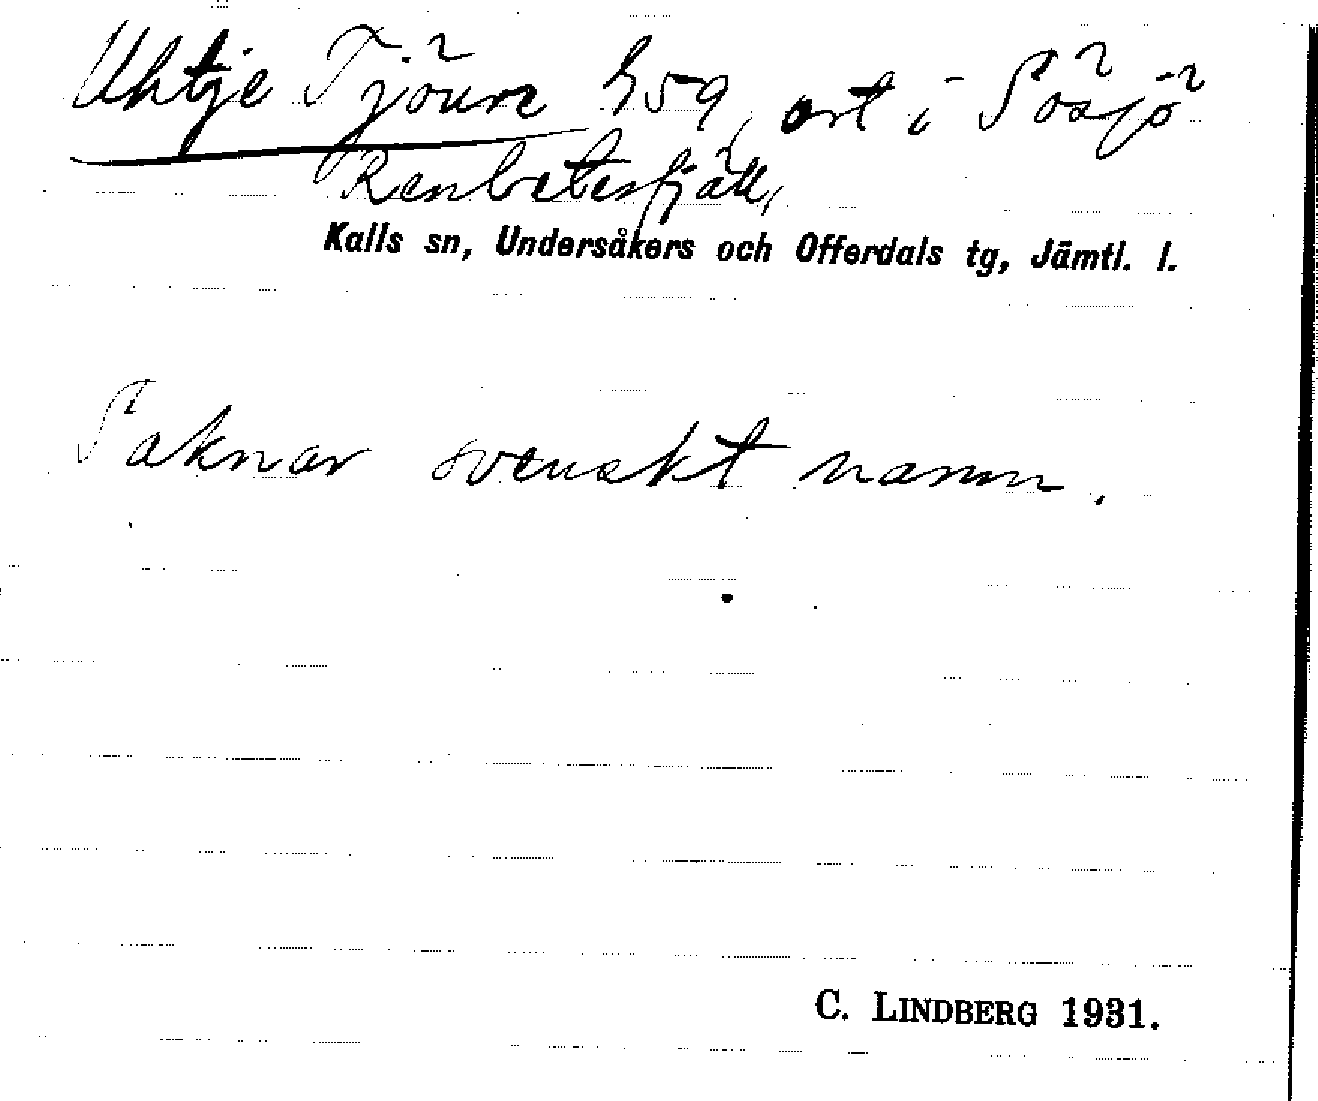 Uhtje Tjöure h59, ort i Sösjö
Renbetesfjäll,
Kalls sn, Undersåkers och Offerdals tg, Jämtl. l.
Saknar svenskt namn.
C. LINDBERG 1931.